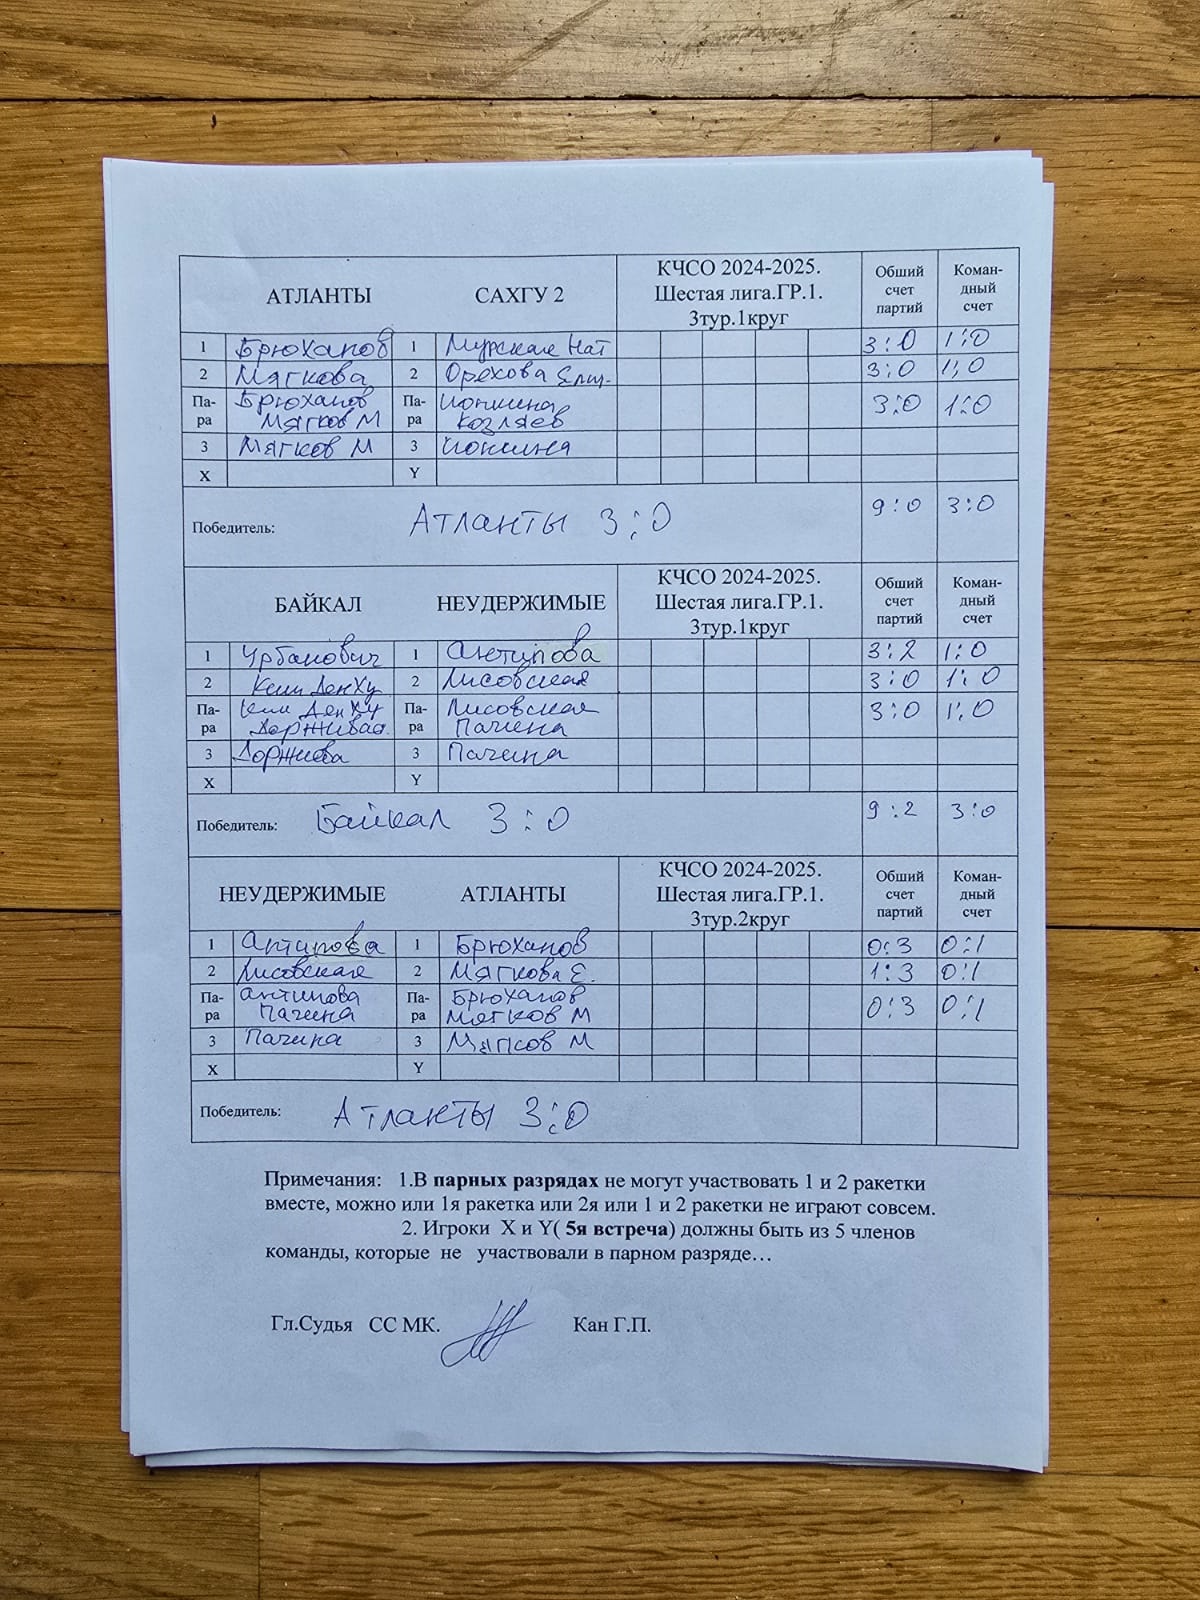 АТЛАНТЫ САХГУ 2 КЧСО 2024-2025. Шестая лига.ГР.1. 3тур.1круг Обший счет партий Коман-дный счет
1 Брюханов 1 Нат 3:0 1:0
2 Мягкова 2 Орехова 3:0 1:0
Па-ра Брюханов Па-ра Ионкина 3:0 1:0
Мягков М Козляев
3 Мягков М 3
X Y
Победитель: Атланты 3:0 9:0 3:0
БАЙКАЛ НЕУДЕРЖИМЫЕ КЧСО 2024-2025. Шестая лига.ГР.1. 3тур.1круг Обший счет партий Коман-дный счет
1 Урбанович 1 Антипова 3:2 1:0
2 Ким ДенХу 2 Лисовская 3:0 1:0
Па-ра Ким ДенХу Па-ра Лисовская 3:0 1:0
Пачина
3 Доржиева 3 Пачина
X Y
Победитель: Байкал 3:0 9:2 3:0
НЕУДЕРЖИМЫЕ АТЛАНТЫ КЧСО 2024-2025. Шестая лига.ГР.1. 3тур.2круг Обший счет партий Коман-дный счет
1 Антипова 1 Брюханов 0:3 0:1
2 Лисовская 2 Мягкова Е. 1:3 0:1
Па-ра Антипова Па-ра Брюханов 0:3 0:1
Пачина Мягков М
3 Пачина 3 Мягков М
X Y
Победитель: Атланты 3:0
Примечания: 1.В парных разрядах не могут участвовать 1 и 2 ракетки
вместе, можно или 1я ракетка или 2я или 1 и 2 ракетки не играют совсем.
2. Игроки X и Y( 5я встреча) должны быть из 5 членов
команды, которые не участвовали в парном разряде…
Гл.Судья СС МК. Кан Г.П.